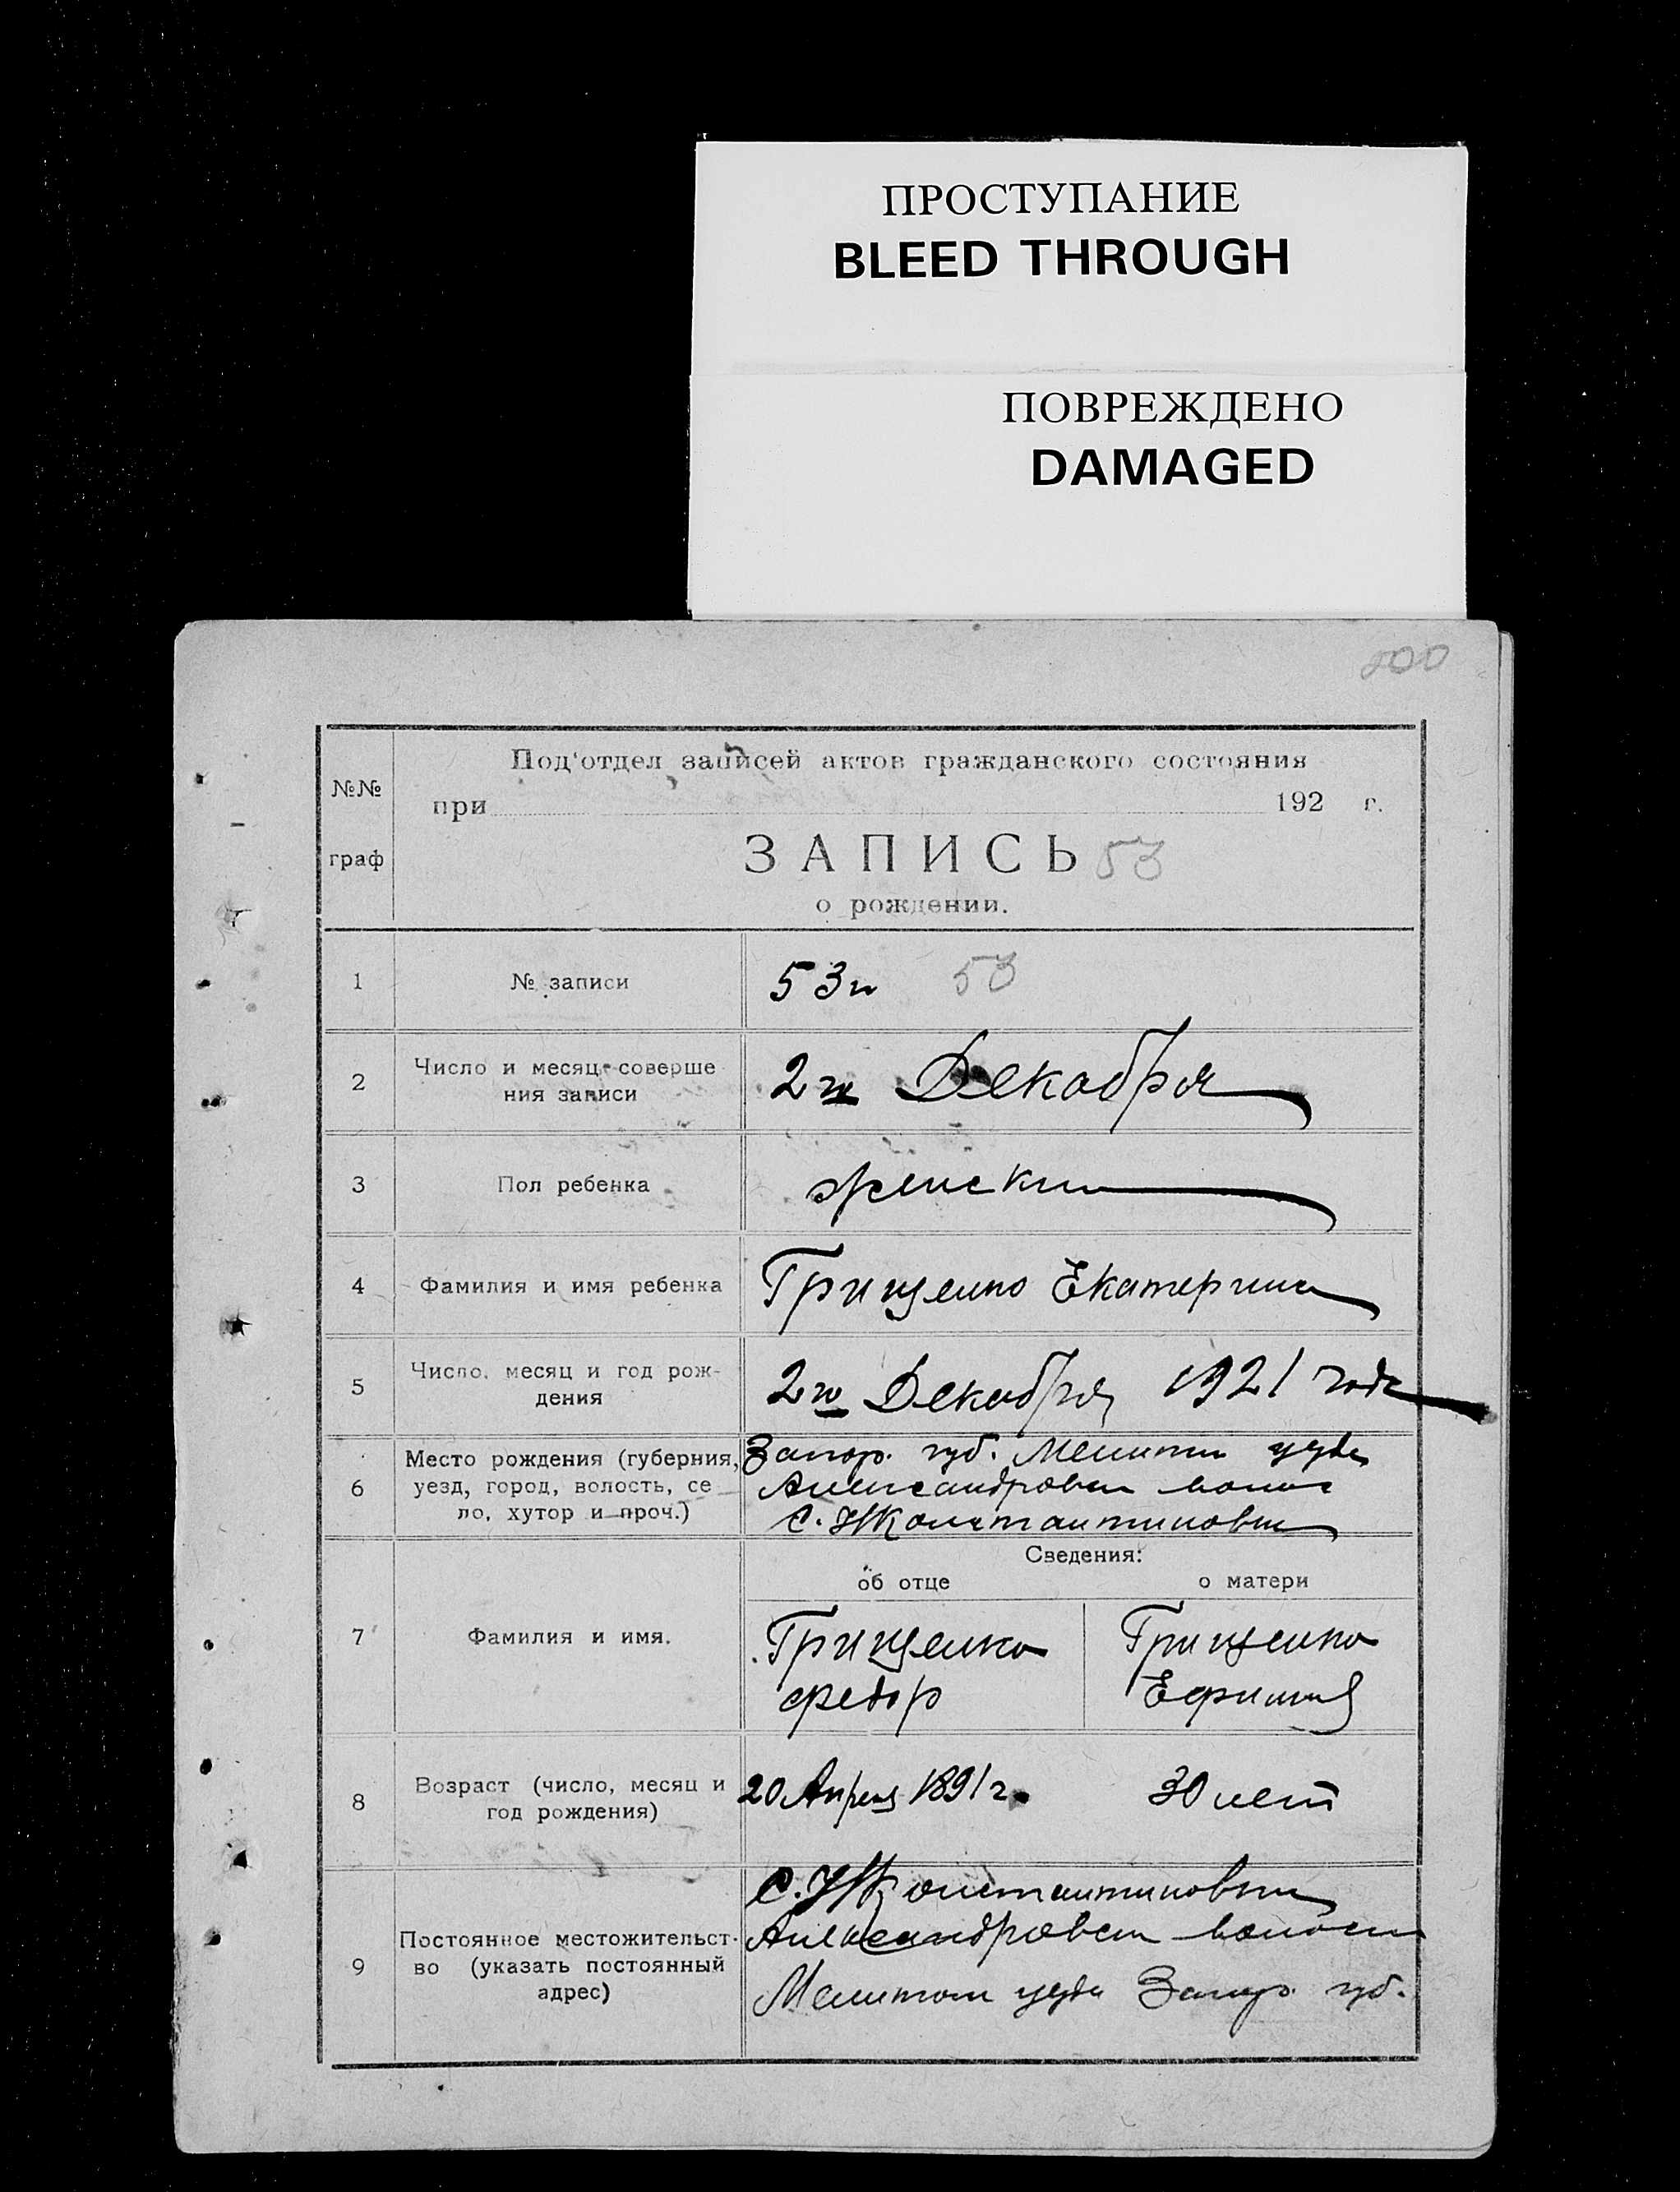 ПРОСТУПАНИЕ
BLEED THROUGH
ПОВРЕЖДЕНО
DAMAGED
200
№№
граф
Под'отдел записей актов гражданского состояния
при 192 г.
ЗАПИСЬ 53
о рождении.
1 № записи 53й 53
2 Число и месяц соверше
ния записи
2го Декабря
3 Пол ребенка женски
4 Фамилия и имя ребенка Грищенко Екатерина
5 Число, месяц и год рож-
дения
2го Декабря 1921 года
6 Место рождения (губерния,
уезд, город, волость, се
ло, хутор и проч.)
Запор. губ. Мелитоп уезда
Александровск волос
С. Константиновки
Сведения:
об отце о матери
7 Фамилия и имя.
Грищенко
Федор
Грищенко
8 Возраст (число, месяц и
год рождения)
20 Апреля 1891 г. 30 лет
9 Постоянное местожительст-
во (указать постоянный
адрес)
С. Константиновки
Александровск волости
Мелитоп уезда Запор. губ.